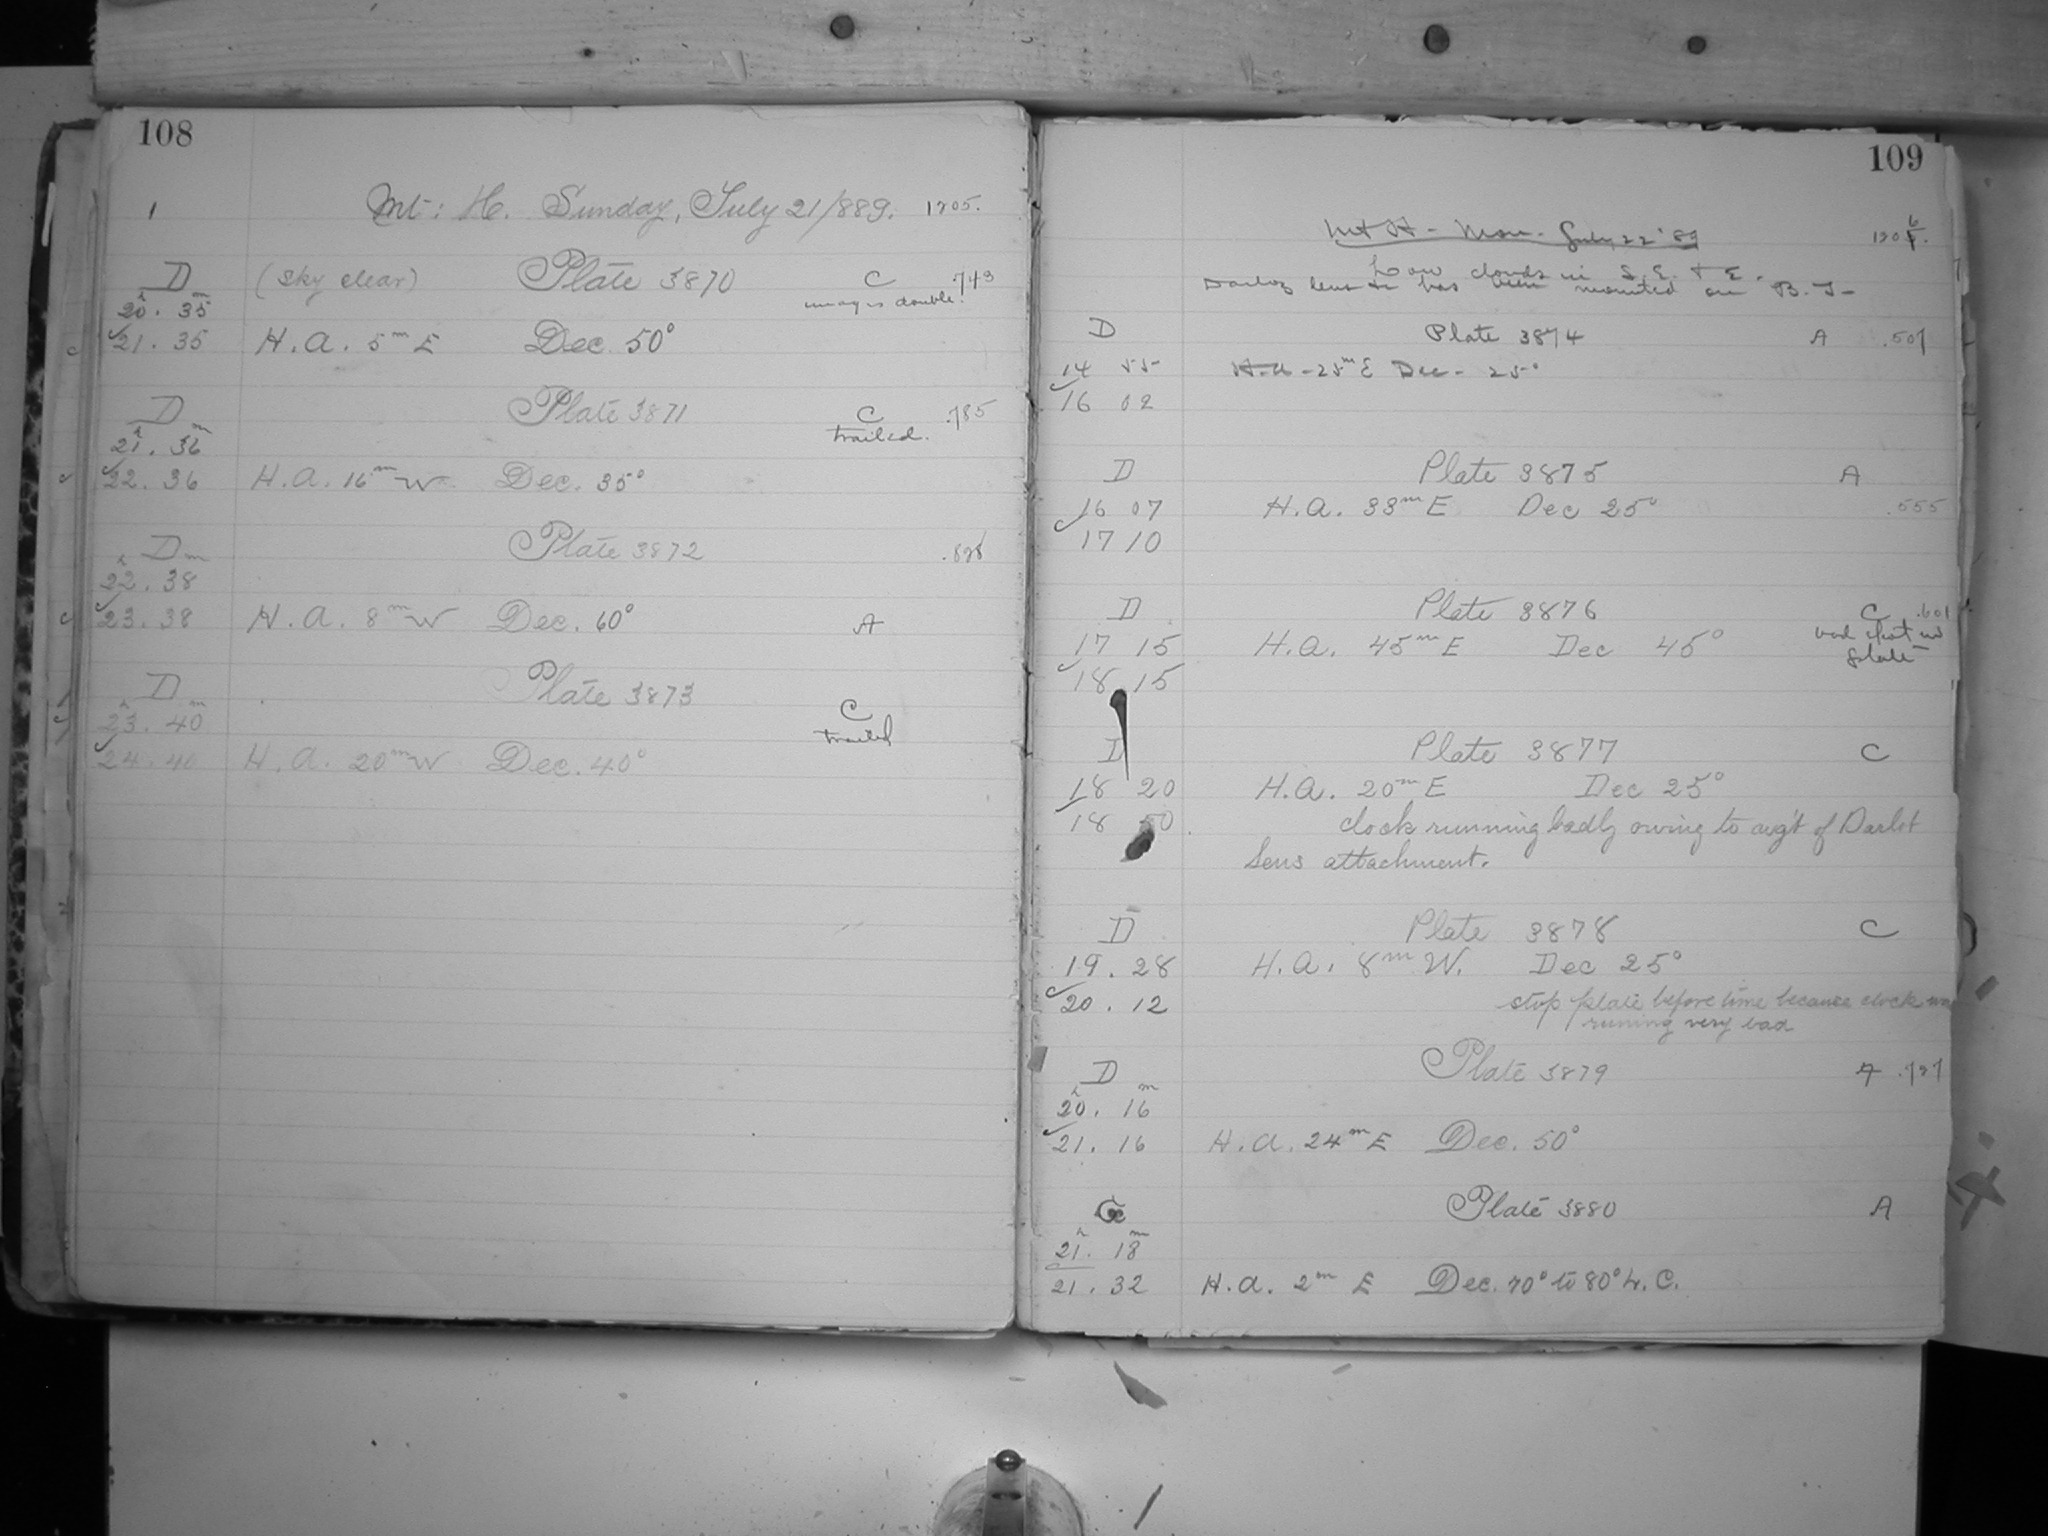 108
1 Mt: H. Sunday, July 21/889. 1205.
D (Sky clear) Plate 3870 C .743
20h. 35m images double.
21. 35 H.A. 5m E Dec. 50°
D Plate 3871 C .785
21h. 36m trailed.
22. 36 H.A. 16m W Dec. 35°
D Plate 3872
22h. 38m
23. 38 H.A. 8m W Dec. 60° A
D Plate 3873 C
23h. 40m trailed
24. 40 H.A. 20m W Dec. 40°
109
Mt H - Mon - July 22 '89 1206.
Low clouds in S.E. & E.
lens has been mounted on B.T-
D Plate 3874 A .507
14 55 H.A - 25m E Dec - 25°
16 02
D Plate 3875 A
16 07 H.A. 33m E Dec 25° .555
17 10
D Plate 3876 C .601
17 15 H.A. 45m E Dec 45° bad spot in
18 15 plate
D Plate 3877 C
18 20 H.A. 20m E Dec 25°
18 50 clock running badly owing to wg't of Darlot
lens attachment.
D Plate 3878 C
19. 28 H.A. 8m W. Dec 25°
20. 12 stop plate before time because clock was
runing very bad
D Plate 3879 A .727
20h. 16m
21. 16 H.A. 24m E Dec. 50°
Plate 3880 A
21h. 18m
21. 32 H.A. 2m E Dec. 70° to 80° L.C.